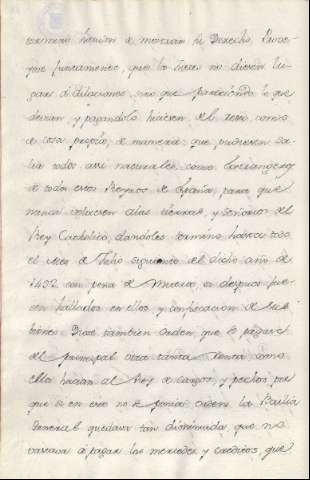 termino havian de mostrar su Derecho. Prove-
yose juntamente, que los Jueces no diesen lu-
gar a dilaciones, sino que pareciendo lo que
devian, y pagandolo hiciesen del resto como
de cosa propio, de manera, que pudiesen sa-
lir todos assi naturales como Extrangeros
de todos estos Reynos de España, para que
nunca volviesen a las tierras, y señorios del
Rey Catholico, dandoles termino hasta todo
el Mes de Julio siguiente del dicho año de
1492 con pena de Muerte, si despues fue-
sen hallados en ellos y confiscacion de sus
bienes. Diose tambien orden, que se pagase
del principal otra tanta renta como
ellos hacian al Rey de cargos, y pechos, por
que si en esto no se ponia orden la Baylia
General quedava tan disminuida, que no
bastava a pagar las mercedes y creditos, que